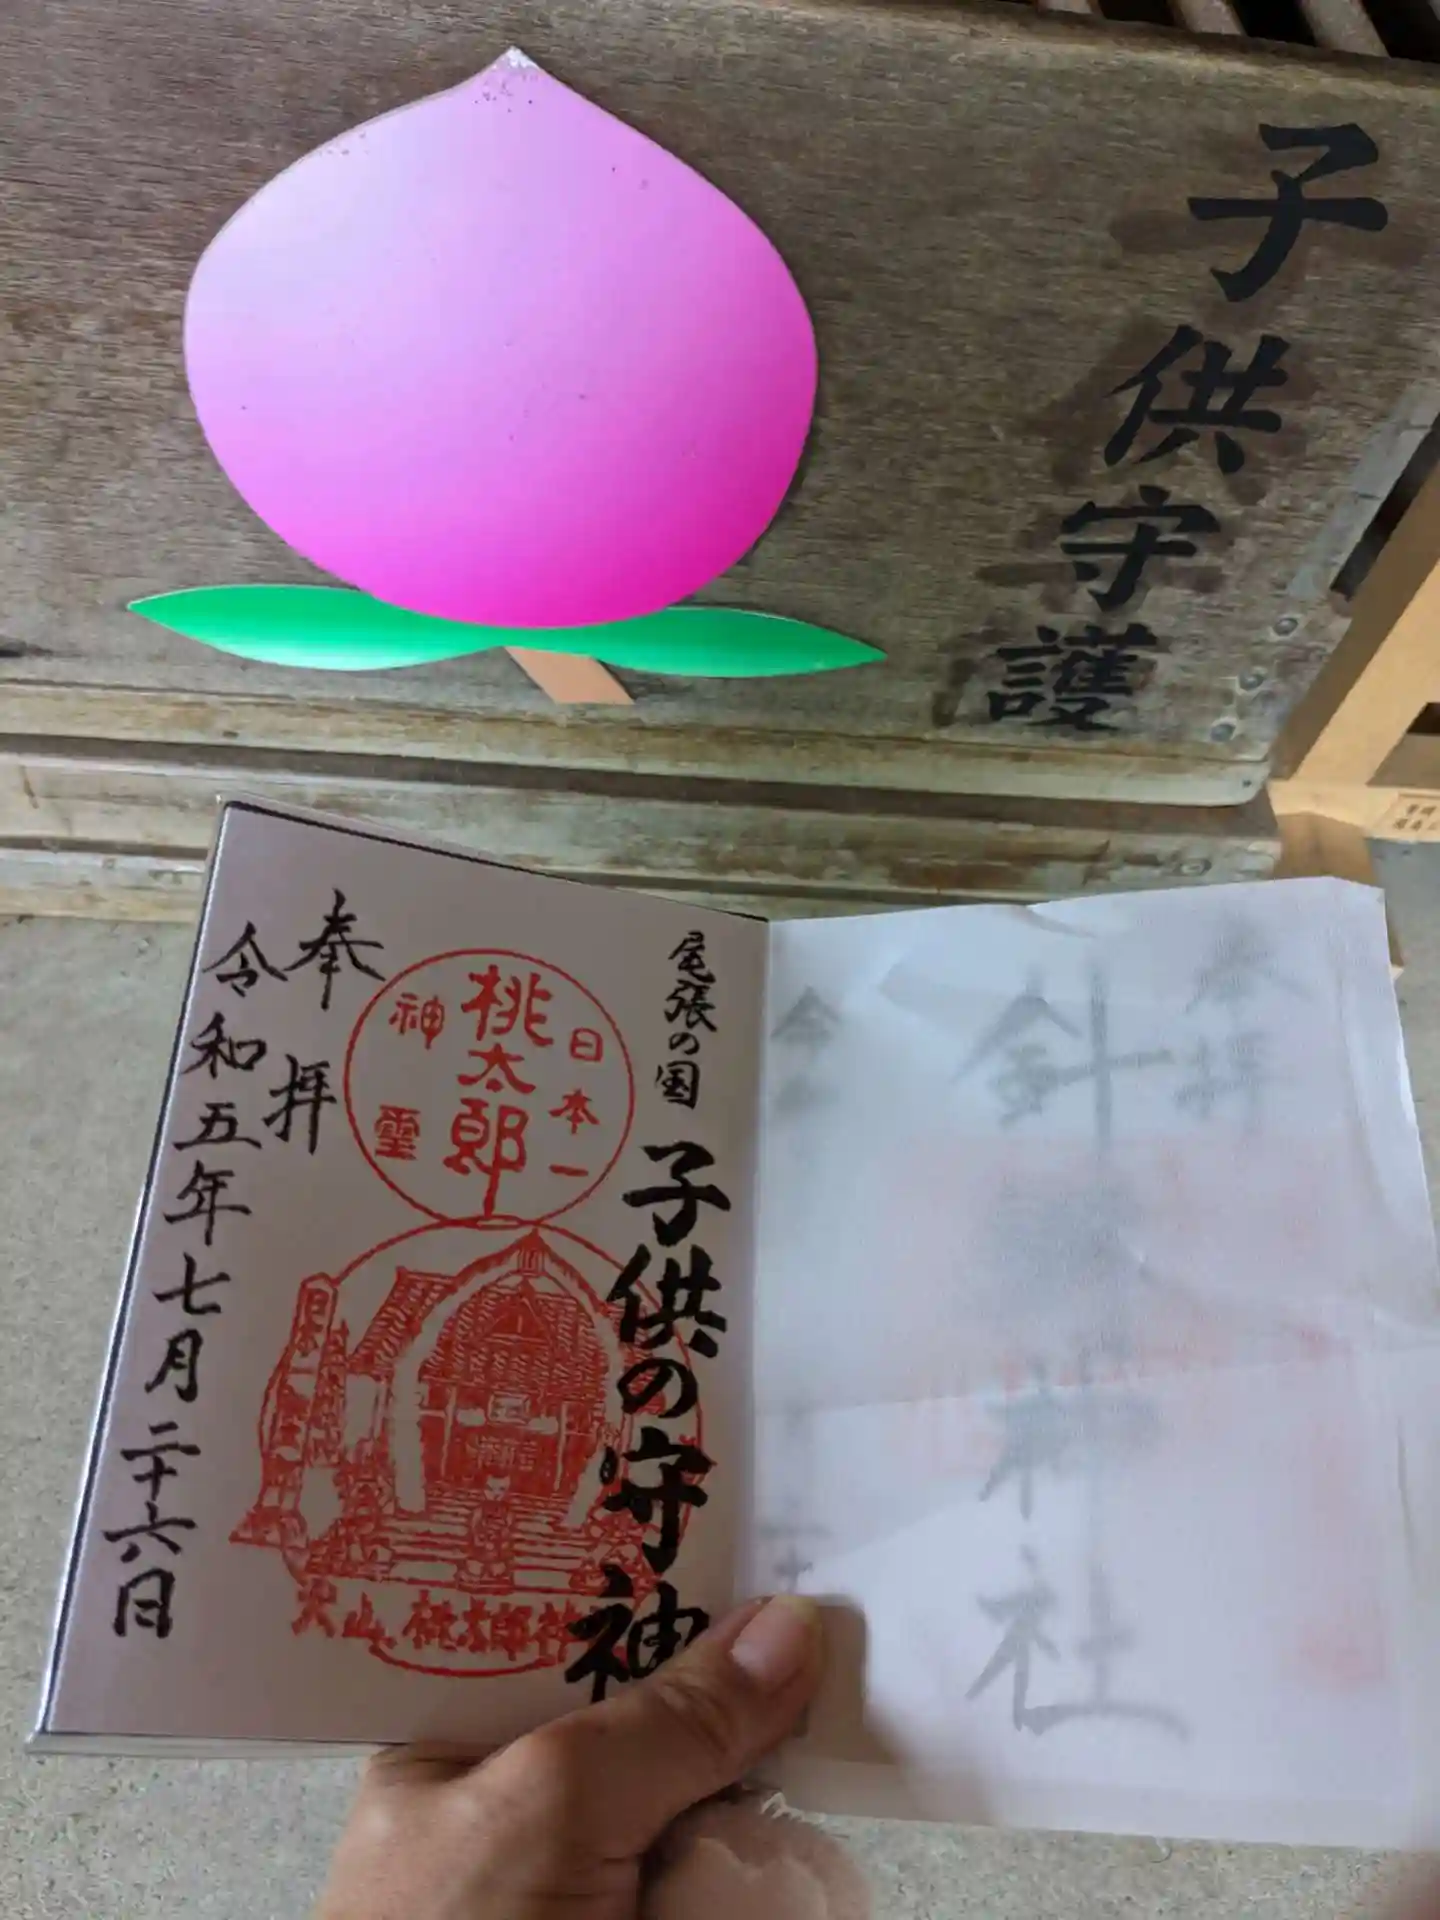 子供守護
尾張の国
子供の守神
日本一
桃太郎
神霊
犬山、桃太郎神
奉拝
令和五年七月二十六日
奉拝
針綱神社